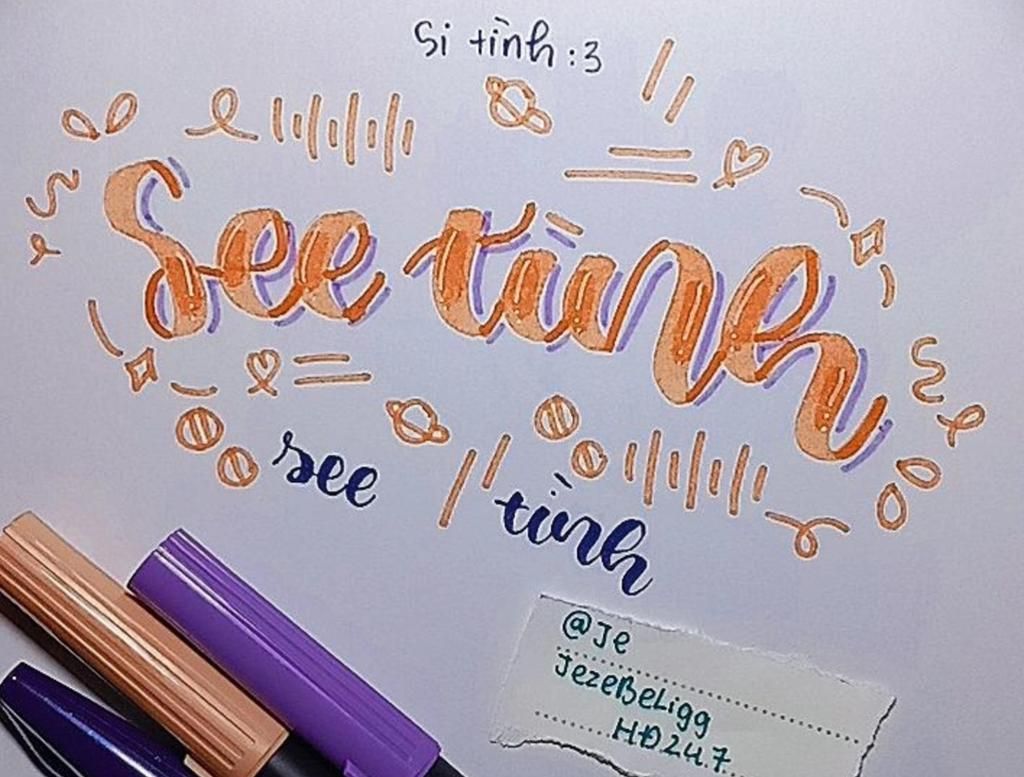 Si tình :3
See tình
see
tình
@Je
JezeBeLigg
HĐ24.7